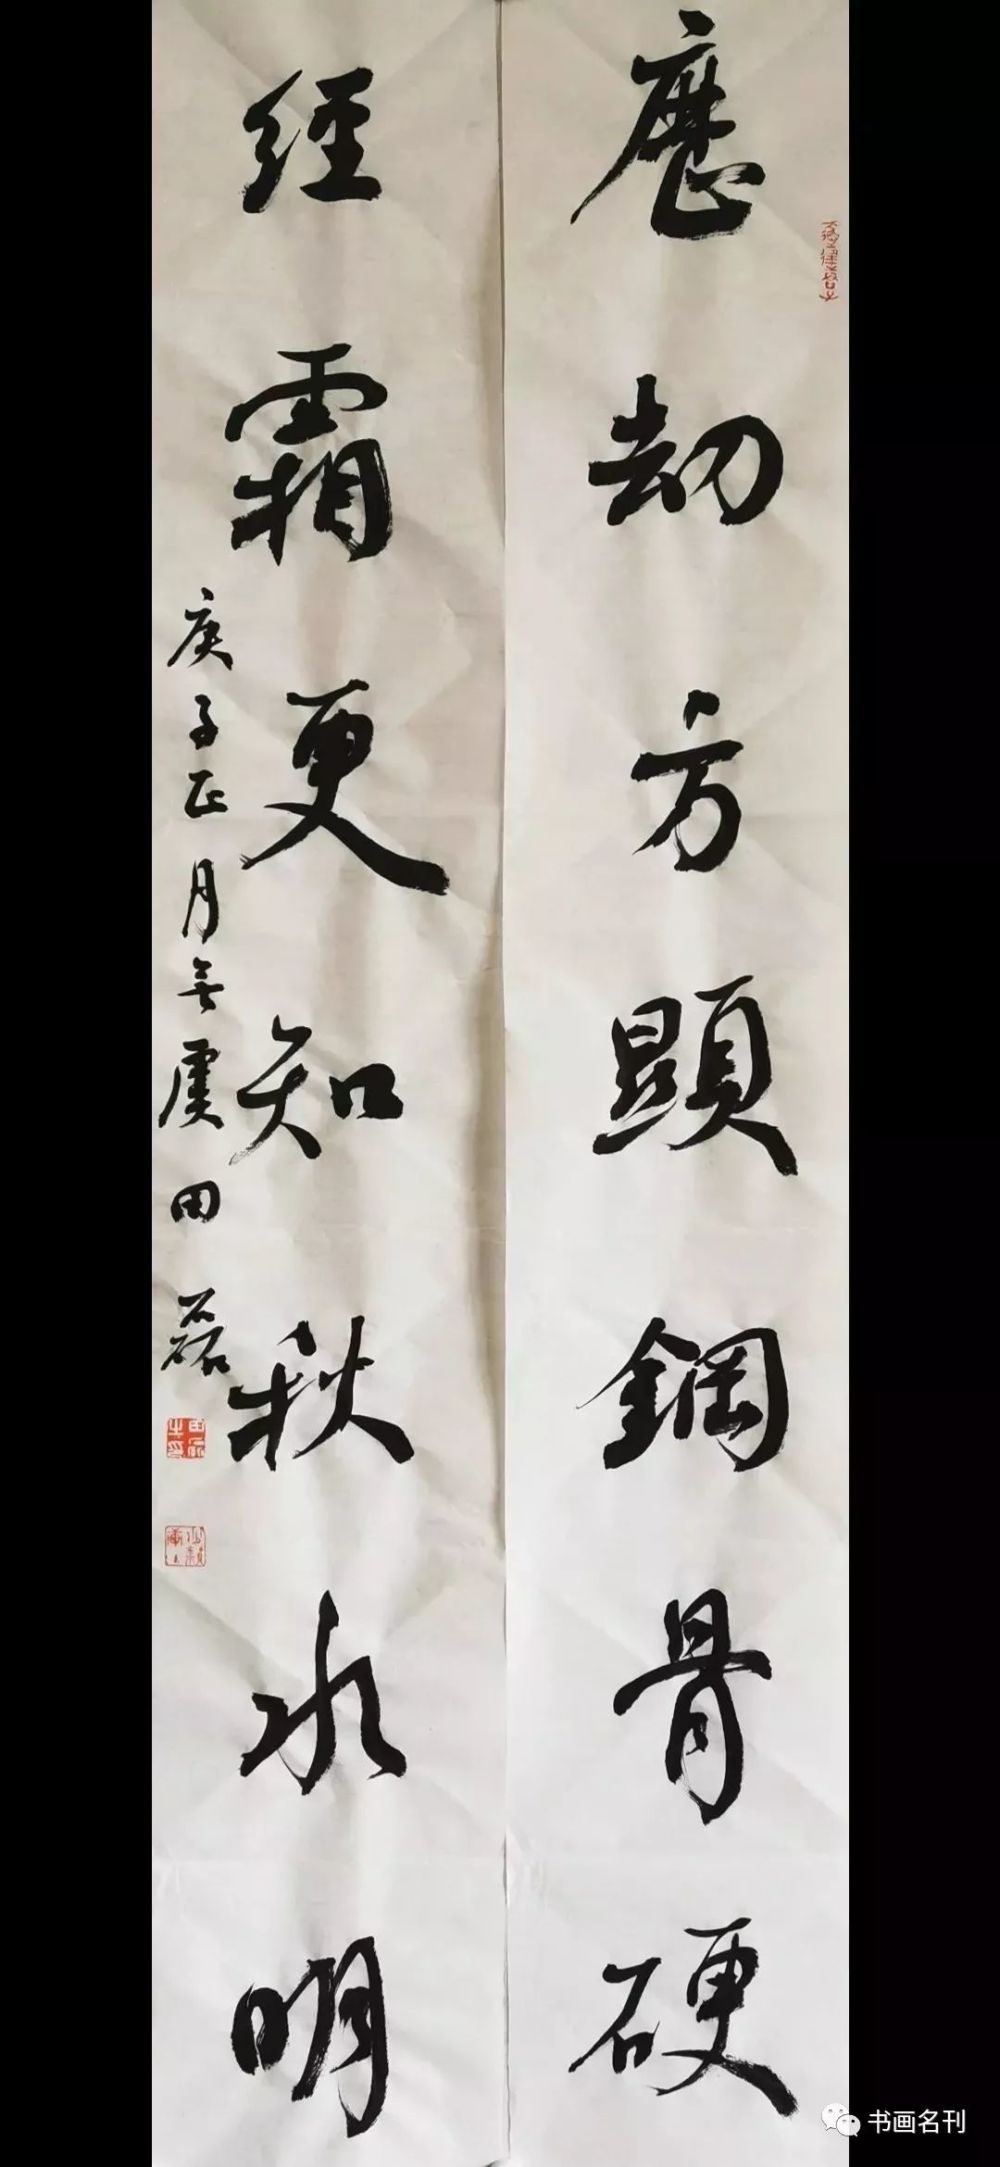 歷劫方顯鋼骨硬
經霜更知秋水明
庚子正月無虞田磊
书画名刊